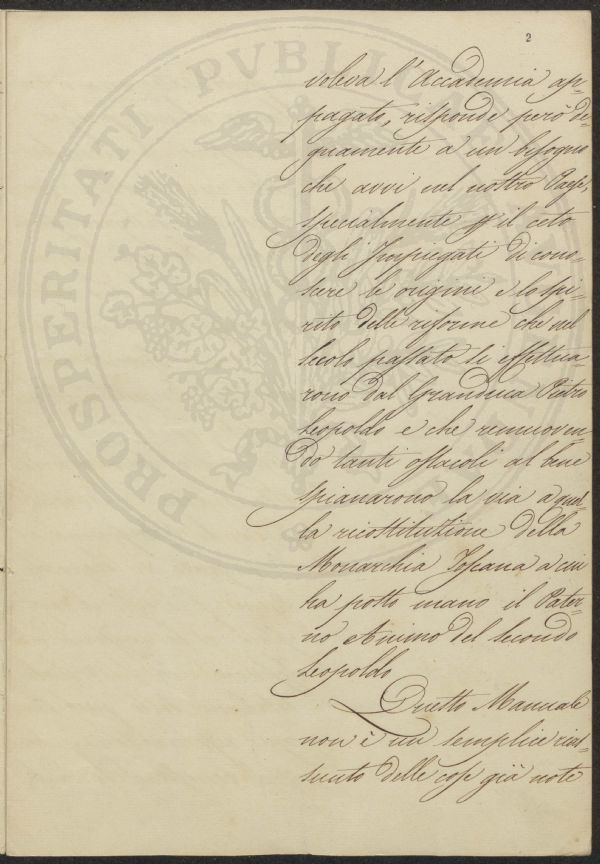 2
PROSPERITATI PVBLICAE
voleva l'Accademia ap=
pagato, risponde però de=
gnamente a un bisogno
che avvi nel nostro Paese,
specialmente pr il ceto
degli Impiegati di cono=
scere le origini e lo spi=
rito delle riforme che nel
secolo passato si effettua=
rono dal Granduca Pietro
Leopoldo e che rimuoven=
do tanti ostacoli al bene
spianarono la via a quel=
la ricostituzione della
Monarchia Toscana a cui
ha posto mano il Pater=
no Animo del Secondo
Leopoldo
Questo Manuale
non è un semplice rias=
sunto delle cose già note